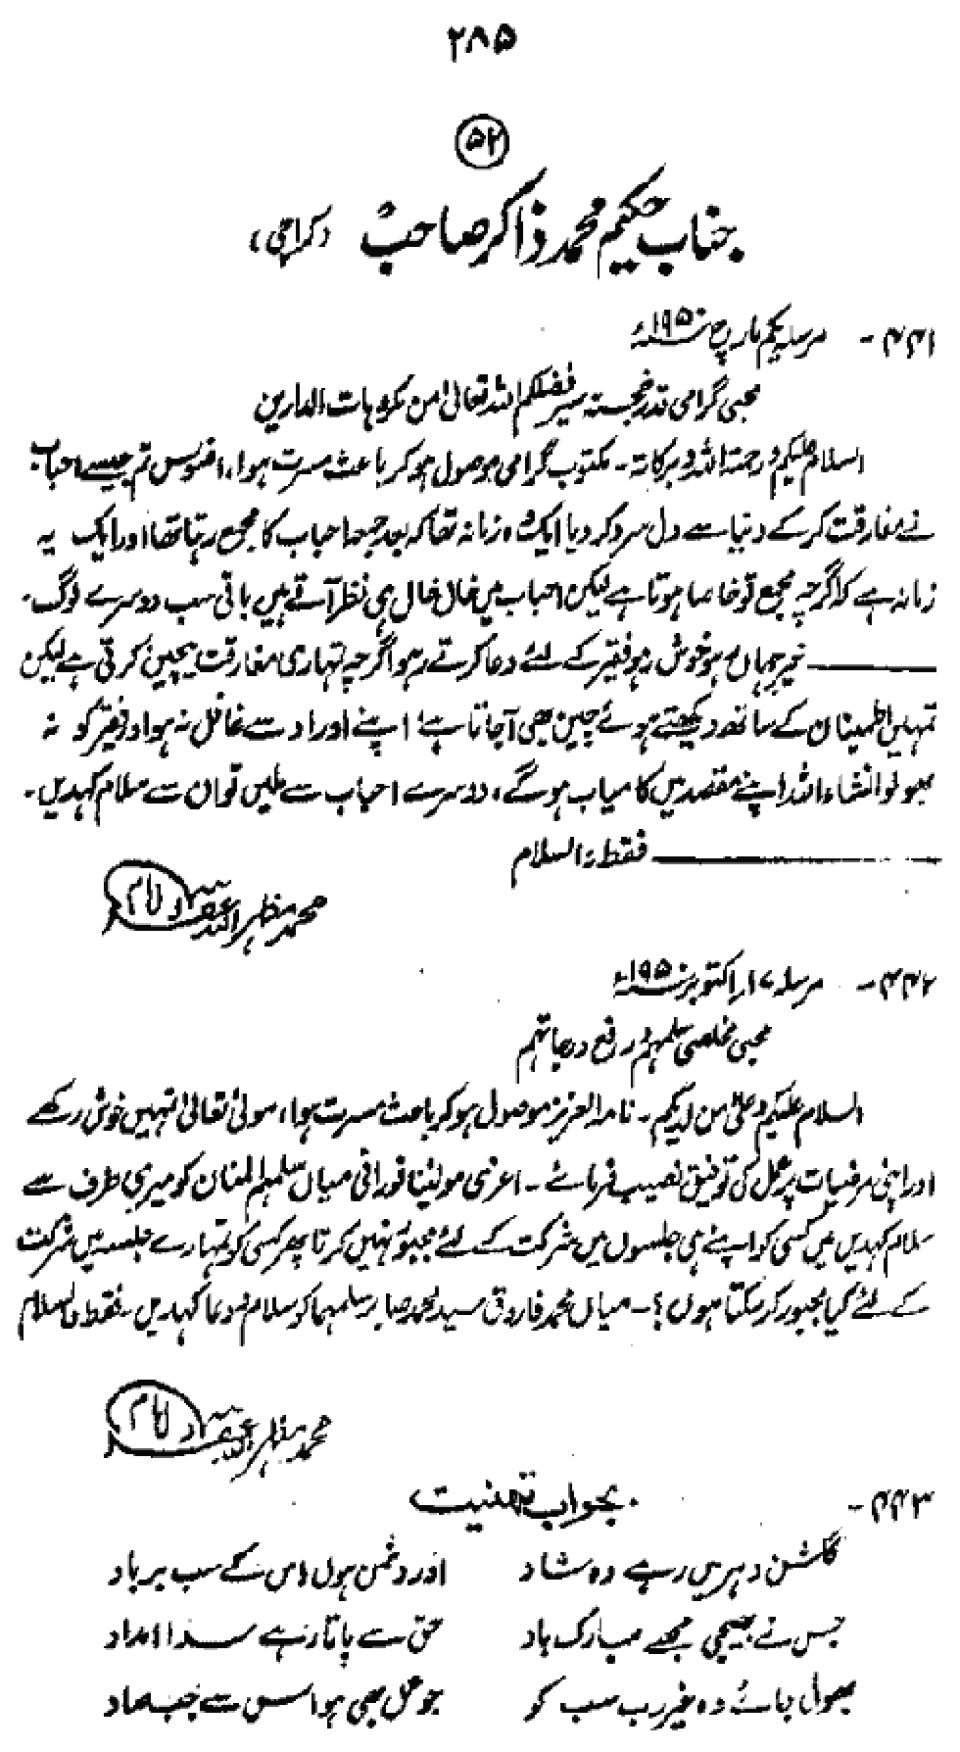 ۲۸۵
۵۲
جناب حکیم محمد ذاکر صاحبؒ (کراچی)
۴۴۱ - مرسلہ یکم مارچ ۱۹۵۰ء
محبی گرامی قدر خجستہ سیر فضلکم اللہ تعالیٰ من مکروہات الدارین
السلام علیکم ورحمۃ اللہ وبرکاتہ - مکتوب گرامی موصول ہوکر باعث مسرت ہوا، افسوس تم جیسے احباب
نے مفارقت کرکے دنیا سے دل سرد کردیا ایک وہ زمانہ تھا کہ بعد جمعہ احباب کا مجمع رہتا تھا اور ایک یہ
زمانہ ہے کہ اگرچہ مجمع تو خاصا ہوتا ہے لیکن احباب میں خال خال ہی نظر آتے ہیں باقی سب دوسرے لوگ۔
خیر جہاں ہو خوش رہو فقیر کے لئے دعا کرتے رہو اگرچہ تمہاری مفارقت بیچین کرتی ہے لیکن
تمہیں اطمینان کے ساتھ دیکھتے ہوئے چین بھی آجاتا ہے؛ اپنے اوراد سے غافل نہ ہو اور فقیر کو نہ
بھولو انشاءاللہ اپنے مقصد میں کامیاب ہوگے، دوسرے احباب سے ملیں تو ان سے سلام کہدیں۔
فقط والسلام
محمد مظہر اللہ غفرلہ امام
۴۴۲ - مرسلہ ۷ار اکتوبر ۱۹۵۰ء
محبی مخلصی سلمہم ورفع درجاتہم
السلام علیکم وعلیٰ من لدیکم - نامہ العزیز موصول ہوکر باعث مسرت ہوا، مولیٰ تعالیٰ تمہیں خوش رکھے
اور اپنی مرضیات پر عمل کی توفیق نصیب فرمائے - اعزی مولینا نورانی میاں سلمہم المنان کو میری طرف سے
سلام کہدیں میں کسی کو اپنے ہی جلسوں میں شرکت کے لئے مجبور نہیں کرتا پھر کسی کو تمہارے جلسہ میں شرکت
کے لئے کیا مجبور کرسکتا ہوں؟ - میاں محمد فاروق سید محمد صابر سلمہما کو سلام و دعا کہدیں - فقط والسلام
محمد مظہر اللہ غفرلہ امام
۴۴۳ - بجواب تہنیت
گلشن دہر میں رہے وہ شاد اور دشمن ہوں اس کے سب برباد
جس نے بھیجی مجھے مبارک باد حق سے پاتا رہے سدا امداد
بھول جائے وہ غیر رب سب کو جو عمل بھی ہو اس سے جہاد